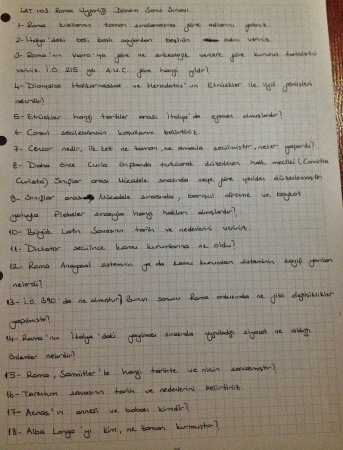 LAT 103 Roma Uygarlığı Dönem Sonu Sınavı
1- Roma krallarının zaman sıralamasına göre adlarını yazınız.
2- İtalya'daki belli başlı ırklardan beşinin adını veriniz.
3- Roma'nın Varro'ya göre ve arkeolojik verilere göre kuruluş tarihlerini
veriniz. İ.Ö. 215 yılı A.U.C. göre hangi yıldır?
4- Dionysios Halikarnasseus ve Herodotos'un Etrüskler ile ilgili görüşleri
nelerdir?
5- Etrüskler hangi tarihler arası İtalya'da egemen olmuşlardır?
6- Consul seçilebilmenin koşullarını belirtiniz.
7- Censor nedir, ilk kez ne zaman, ne amaçla seçilmiştir, neler yapardı?
8- Daha önce Curia önplanda tutularak düzenlenen halk meclisi (Comitia
Curiata) Sınıflar arası Mücadele sırasında neye göre yeniden düzenlenmiştir
9- Sınıflar arası Mücadele sırasında, barışçıl direnme ve boykot
yoluyla Plebsler sırasıyla hangi hakları almışlardır?
10- Büyük Latin Savaşının tarih ve nedenlerini veriniz.
11- Dictator seçilince kamu kurumlarına ne olur?
12- Roma Anayasal sisteminin ya da kamu kurumları sisteminin zayıf yanları
nelerdi?
13- İ.Ö. 390'da ne olmuştur? Bunun sonucu Roma ordusunda ne gibi değişiklikler
yapılmıştır?
14- Roma'nın İtalya'daki yayılması sırasında uyguladığı siyaset ve aldığı
önlemler nelerdir?
15- Roma, Samnitler'le hangi tarihte ve niçin savaşmıştır?
16- Tarentum savaşının tarih ve nedenlerini belirtiniz.
17- Aeneas'ın annesi ve babası kimdir?
18- Alba Longa'yı kim, ne zaman kurmuştur?